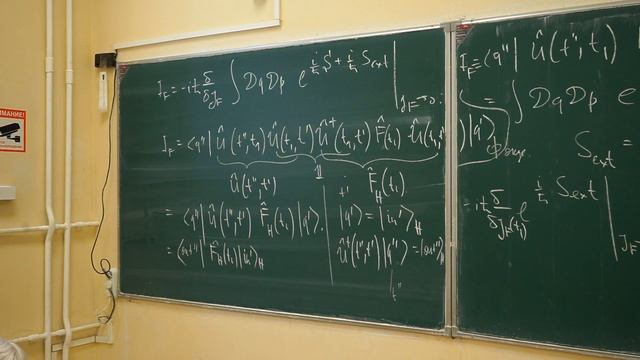 НИМАНИЕ!
I_F = -iħ δ/δJ_F ∫ Dq Dp e^{i/ħ S + i/ħ S_ext} |_{J_F=0}.
I_F = ⟨q''| Û(t'',t_1) Û(t_1,t') Û†(t_1,t') F̂(t_1) Û(t_1,t') |q'⟩
Û(t'',t') 1 F̂_H(t_1).
= ⟨q''| Û(t'',t') F̂_H(t_1) |q'⟩.
= ⟨out''| F̂_H(t_1) |in'⟩_H
t' |q'⟩ = |in'⟩_H
Û†(t'',t') |q''⟩ = |out''⟩_H
t''
I_F = ⟨q''| Û(t'',t_1)
= ∫ Dq Dp e
S_ext =
= -iħ δ/δJ_F(t_1) e^{i/ħ S_ext} | J_F